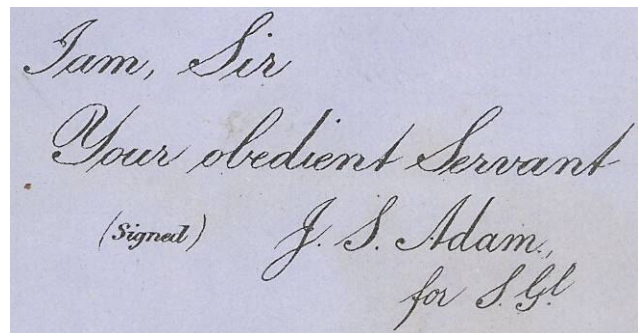 I am, Sir
Your obedient Servant
(Signed) J. S. Adam,
for S. Gl.